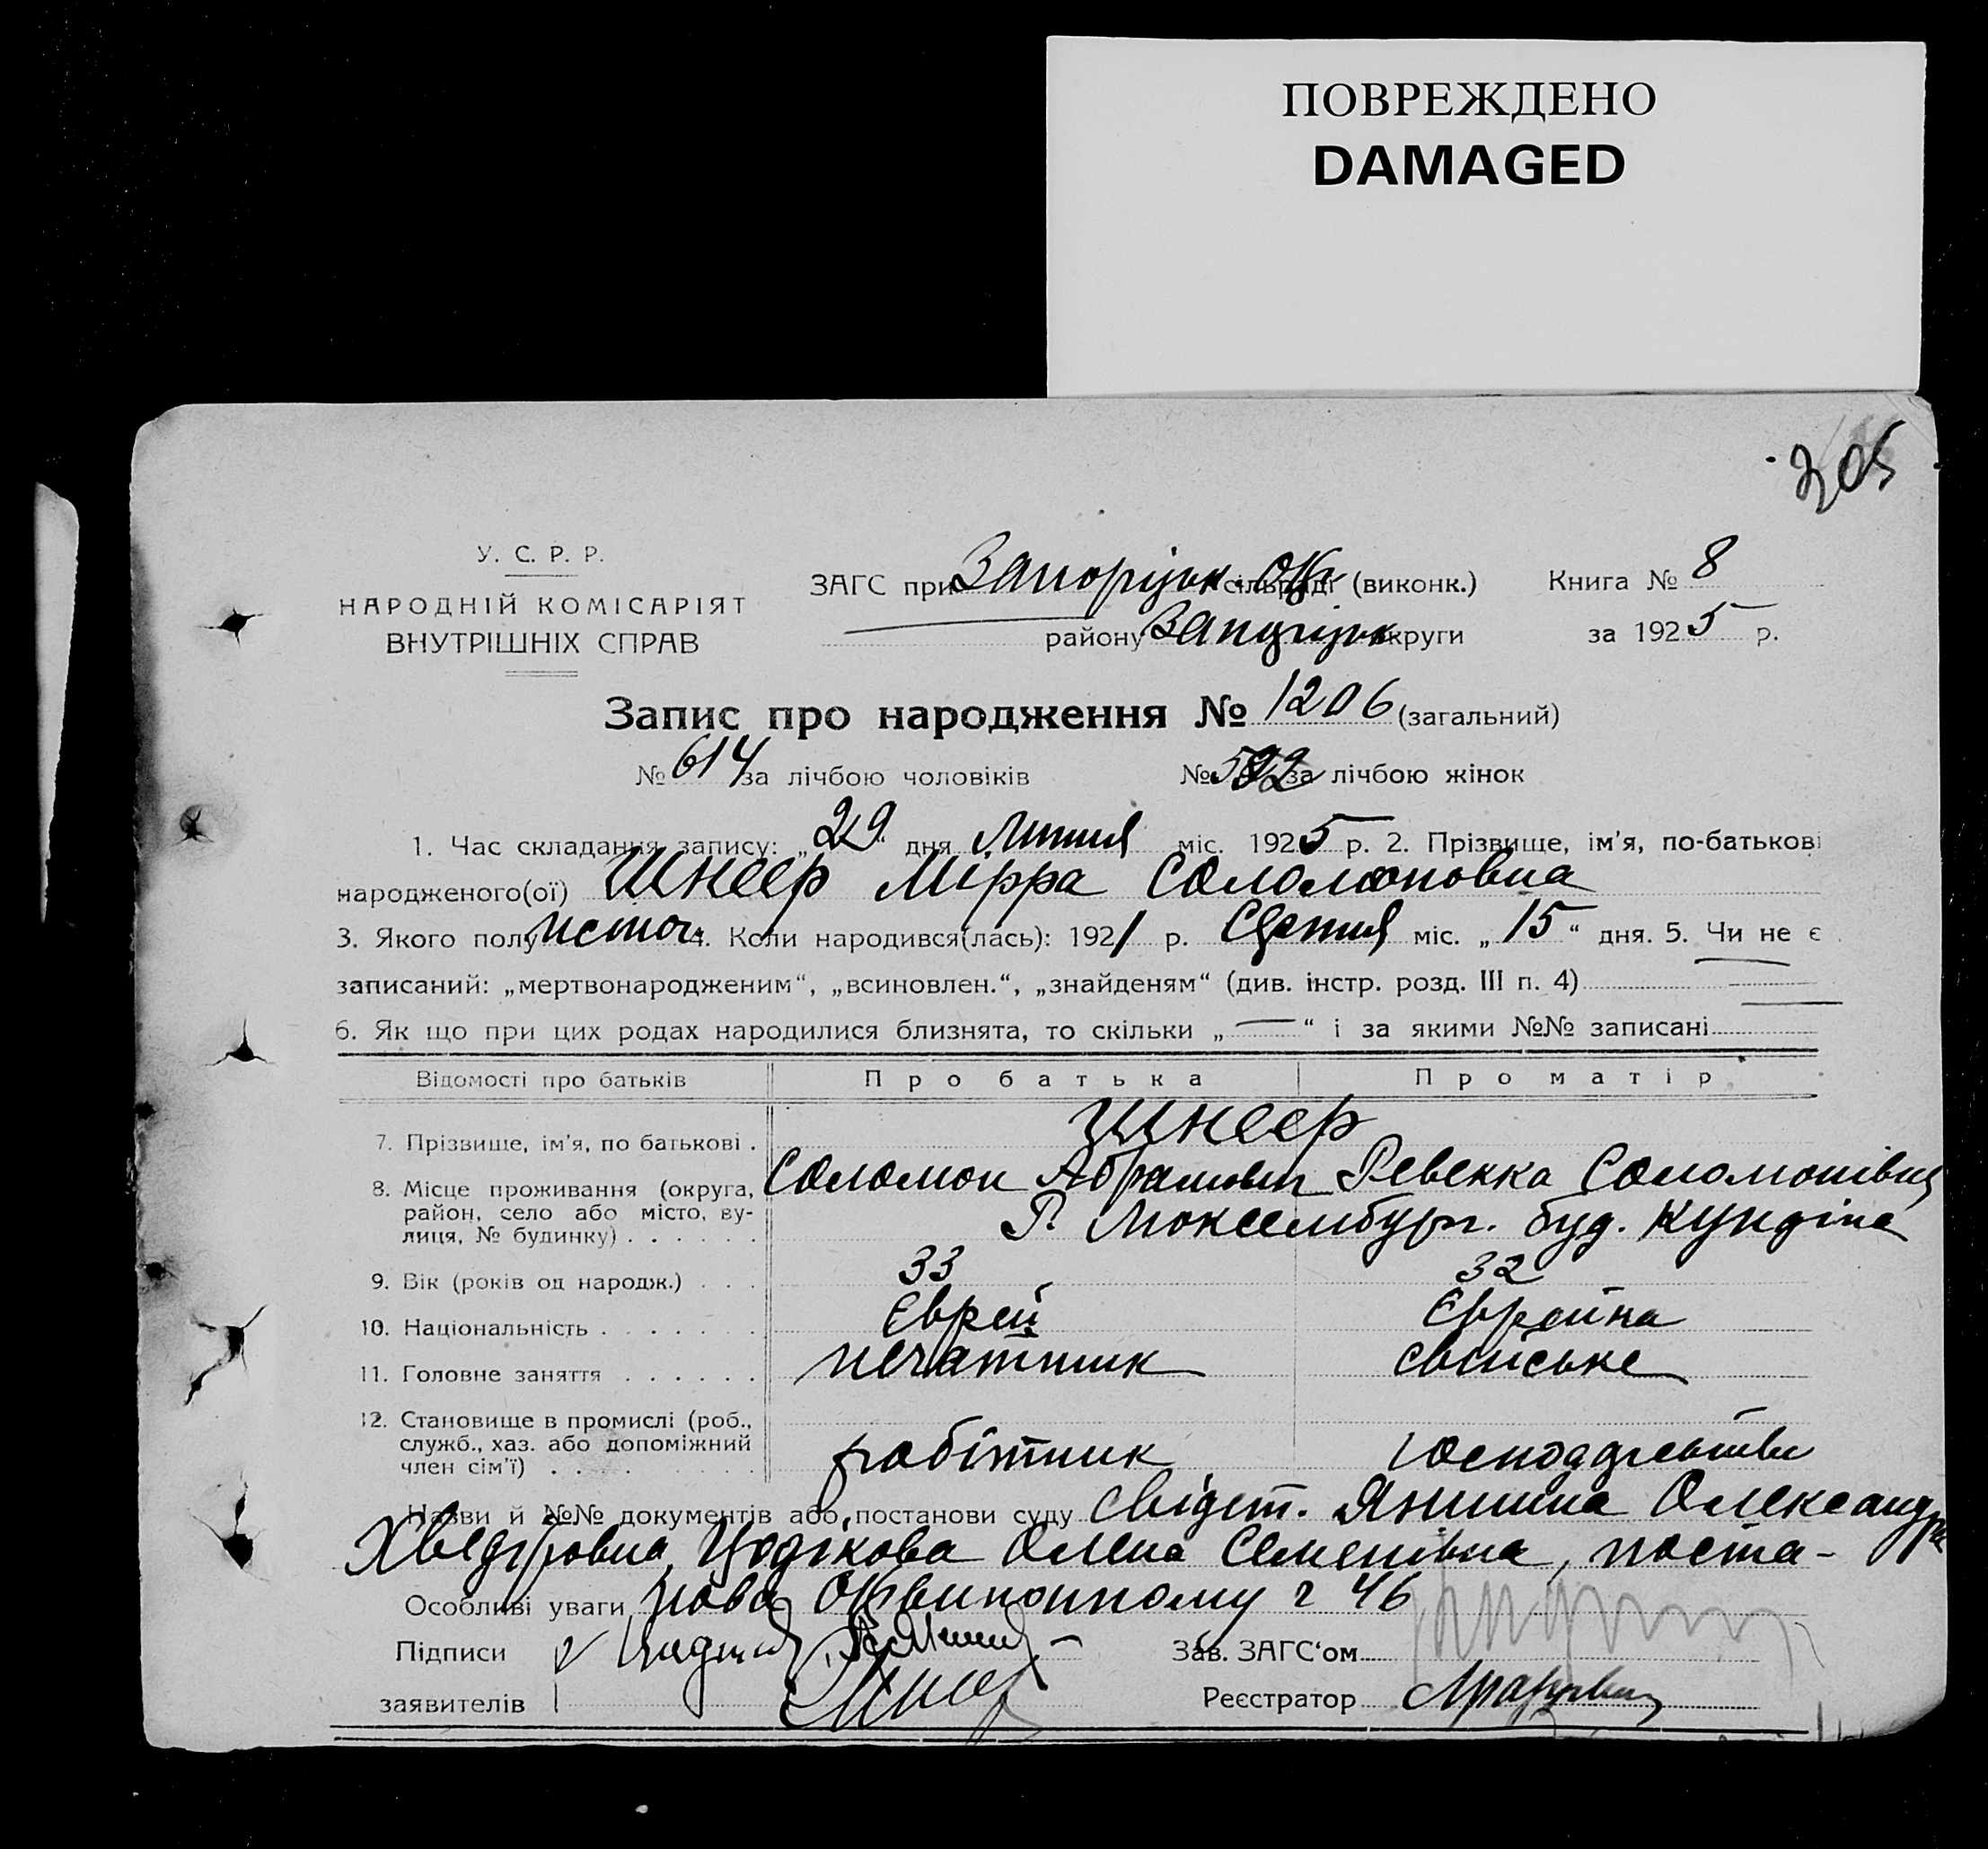 ПОВРЕЖДЕНО
DAMAGED
305
У. С. Р. Р.
НАРОДНІЙ КОМІСАРІЯТ
ВНУТРІШНІХ СПРАВ
ЗАГС при Запоріжк. Окр сільраді (виконк.) Книга № 8
району Запоріжк округи за 1925 р.
Запис про народження № 1206 (загальний)
№ 614 за лічбою чоловіків № 592 за лічбою жінок
1. Час складання запису: „29“ дня Липня міс. 1925 р. 2. Прізвище, ім'я, по-батькові
народженого(ої) Шнеер Мірра Соломоновна
3. Якого полу жіноч. 4. Коли народився(лась): 1921 р. Серпня міс. „15“ дня. 5. Чи не є
записаний: „мертвонародженим“, „всиновлен.“, „знайденям“ (див. інстр. розд. III п. 4)
6. Як що при цих родах народилися близнята, то скільки „—“ і за якими №№ записані
Відомості про батьків Про батька Про матір
7. Прізвище, ім'я, по батькові . Шнеер
Соломон Абрамович Ревекка Соломонівна
8. Місце проживання (округа,
район, село або місто, ву-
лиця, № будинку) . . . . . . Р. Люксембург. буд. Кундіна
9. Вік (років од народж.) . . . 33 32
10. Національність . . . . . . . Єврей Єврейка
11. Головне заняття . . . . . . печатник свійське
12. Становище в промислі (роб.,
служб., хаз. або допоміжний
член сім'ї) . . . . робітник господарство
Назви й №№ документів або постанови суду свідст. Яншина Олександра
Хведоровна, Цодікова Олена Семенівна, поста-
Особливі уваги нова Окрвиконкому ч 46
Підписи
заявителів
Зав. ЗАГС'ом
Реєстратор